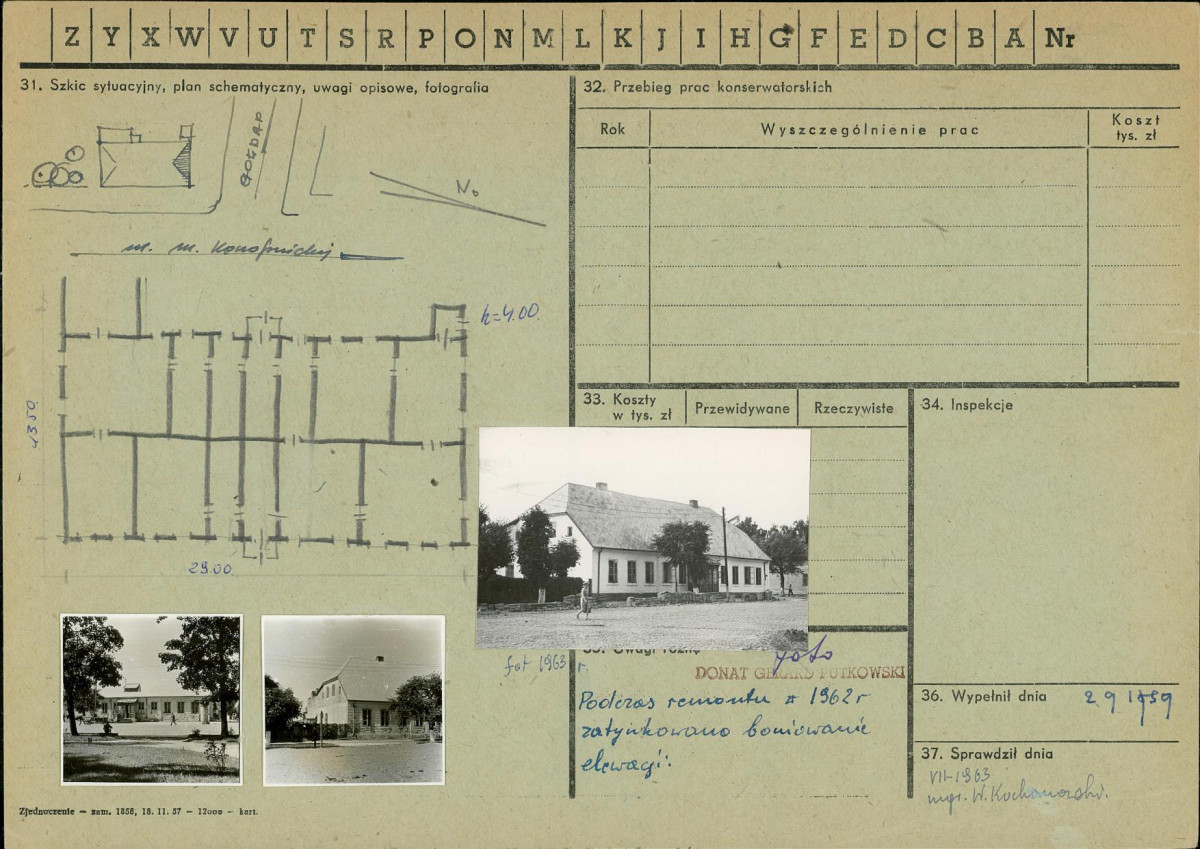 Z Y X W V U T S R P O N M L K J I H G F E D C B A Nr
31. Szkic sytuacyjny, plan schematyczny, uwagi opisowe, fotografia
GOŁDAP
No
h=4.00
13.50
29.00
fot 1963 r.
32. Przebieg prac konserwatorskich
Rok
Wyszczególnienie prac
Koszt
tys. zł
33. Koszty
w tys. zł
Przewidywane
Rzeczywiste
34. Inspekcje
foto
DONAT GERARD PUTKOWSKI
Podczas remontu w 1962 r
zatynkowano boniowanie
elewacji.
36. Wypełnił dnia
2 9 1959
37. Sprawdził dnia
VII-1963
mgr. W. Kochanowski.
Zjednoczenie — zam. 1858, 18. 11. 57 — 12000 — kart.